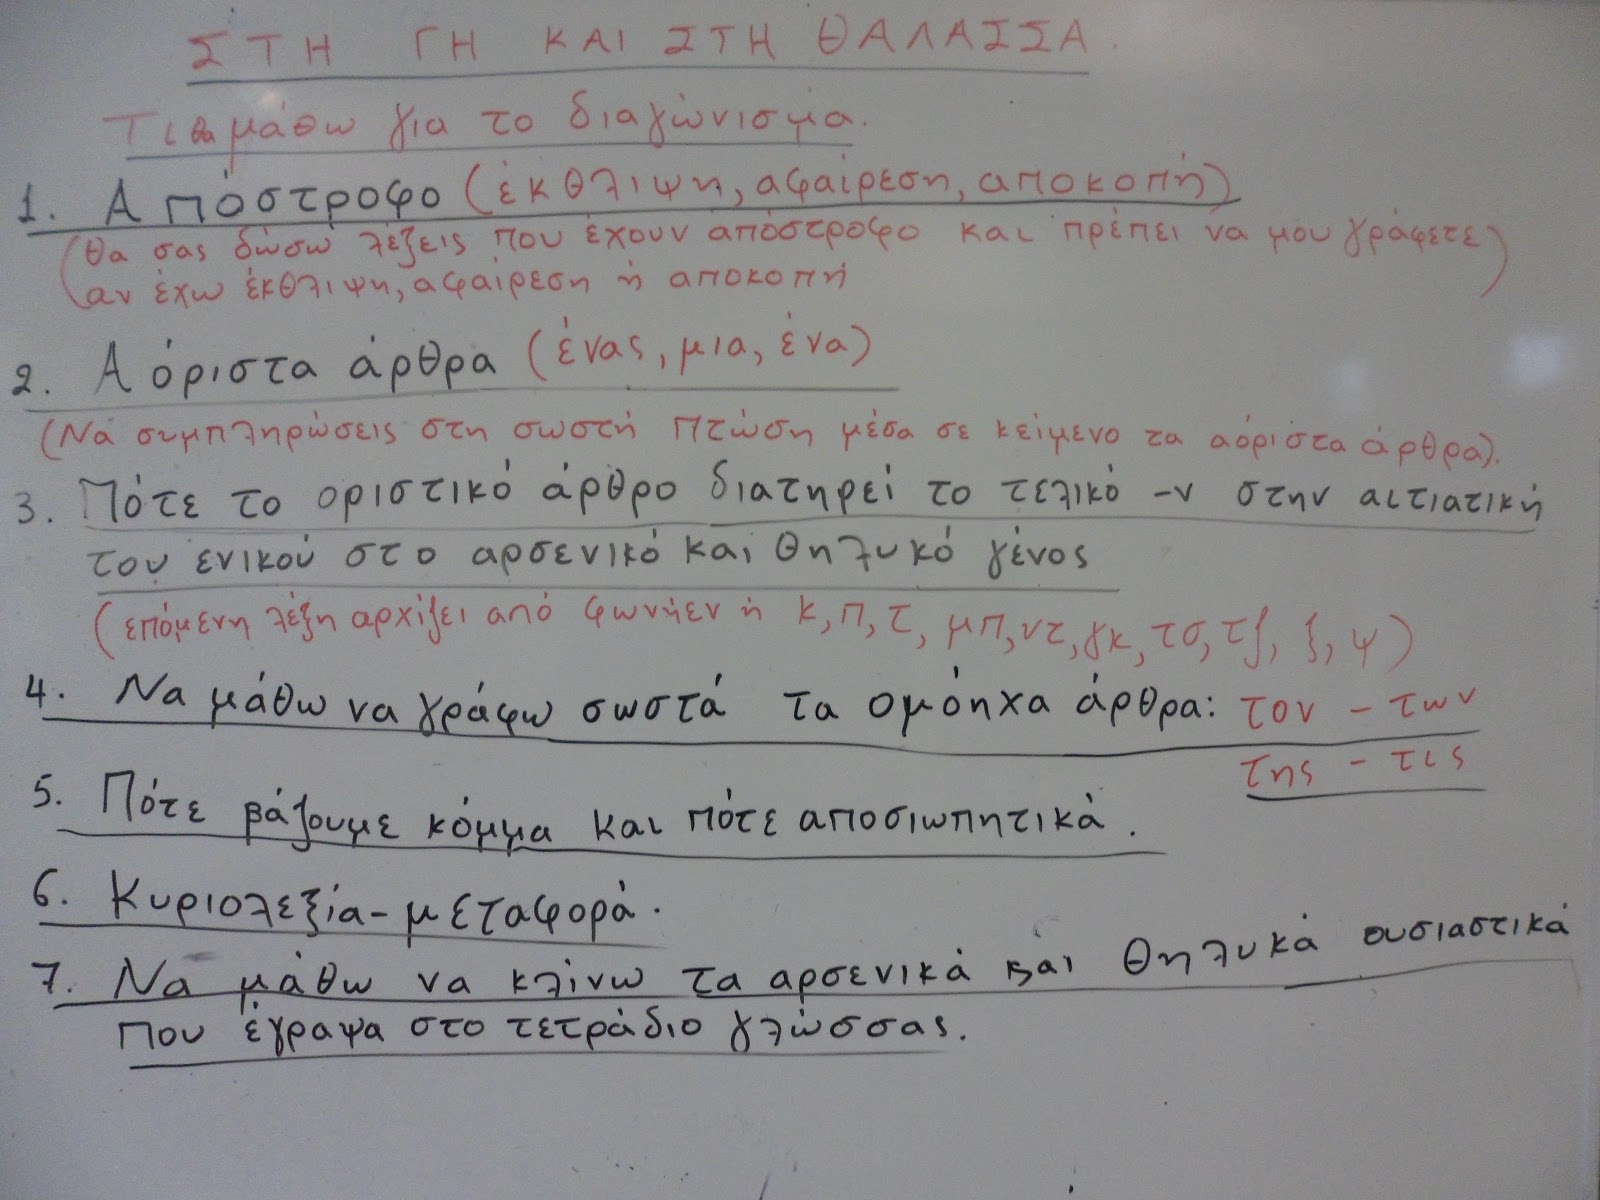 ΣΤΗ ΓΗ ΚΑΙ ΣΤΗ ΘΑΛΑΣΣΑ.
Τι θα μάθω για το διαγώνισμα.
1. Απόστροφο (έκθλιψη, αφαίρεση, αποκοπή)
(θα σας δώσω λέξεις που έχουν απόστροφο και πρέπει να μου γράφετε)
αν έχω έκθλιψη, αφαίρεση ή αποκοπή
2. Αόριστα άρθρα (ένας, μια, ένα)
(Να συμπληρώσεις στη σωστή πτώση μέσα σε κείμενο τα αόριστα άρθρα).
3. Πότε το οριστικό άρθρο διατηρεί το τελικό -ν στην αιτιατική
του ενικού στο αρσενικό και θηλυκό γένος
(επόμενη λέξη αρχίζει από φωνήεν ή κ, π, τ, μπ, ντ, γκ, τσ, τζ, ξ, ψ)
4. Να μάθω να γράφω σωστά τα ομόηχα άρθρα: τον - των
της - τις
5. Πότε βάζουμε κόμμα και πότε αποσιωπητικά.
6. Κυριολεξία - μεταφορά.
7. Να μάθω να κλίνω τα αρσενικά και θηλυκά ουσιαστικά
που έγραψα στο τετράδιο γλώσσας.